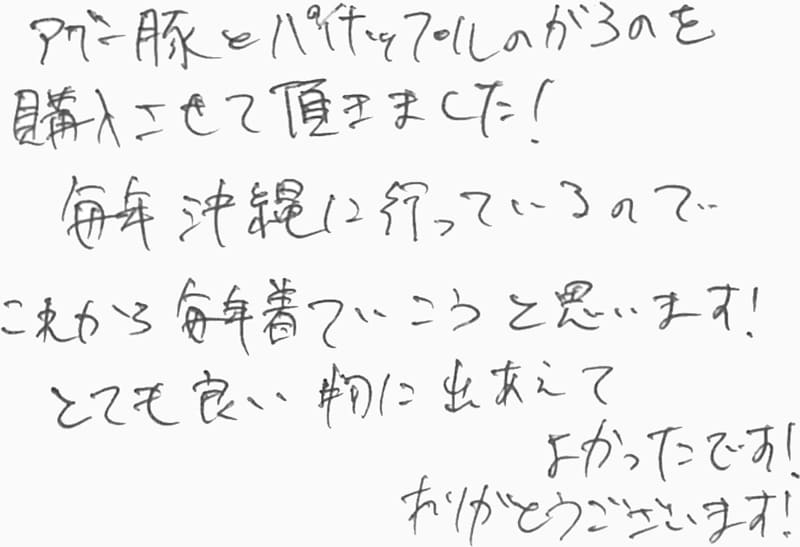 アグー豚とパイナップルのがらのを
購入させて頂きました!
毎年沖縄に行っているので
これから毎年着ていこうと思います!
とても良い物に出あえて
よかったです!
ありがとうございます!